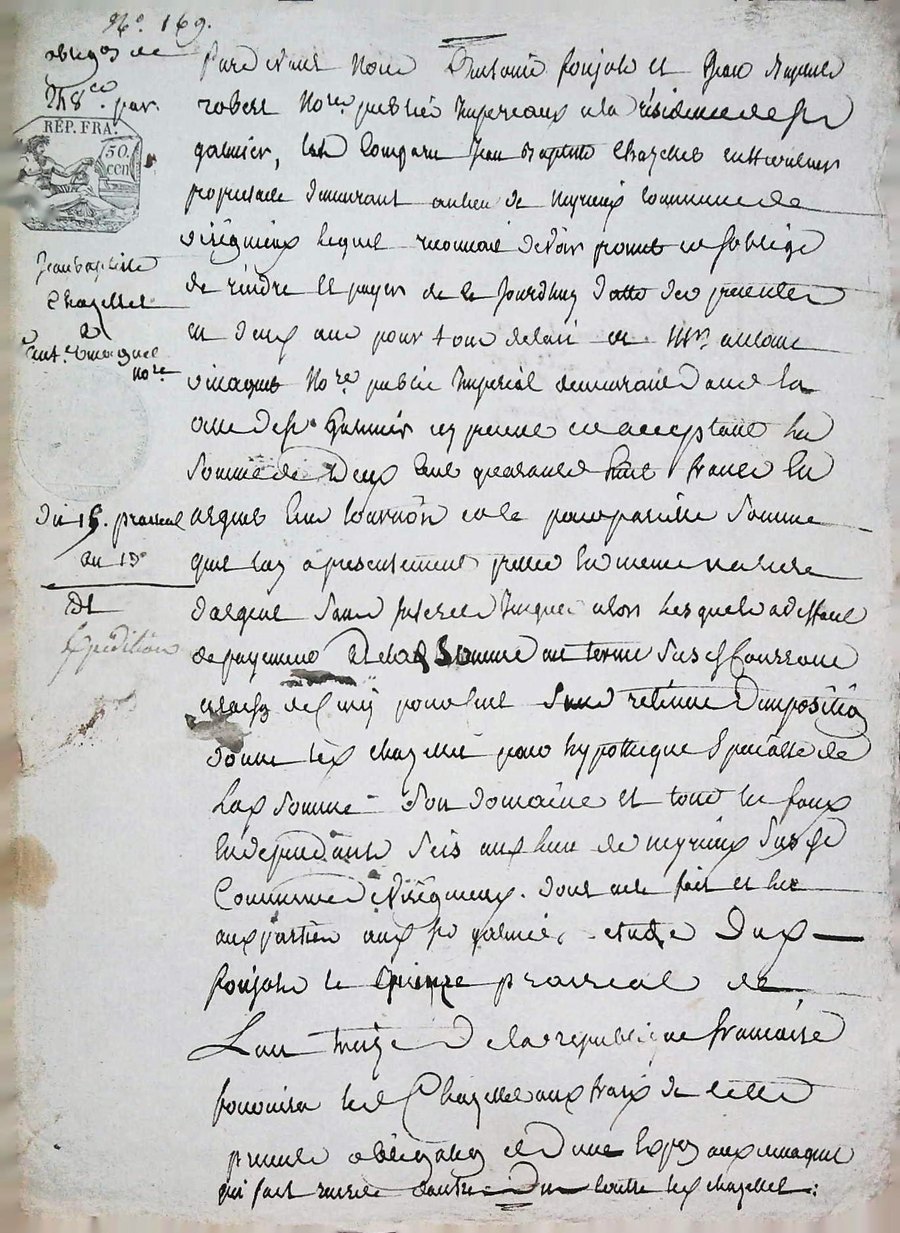 N.º 169.
obligon de
248 co. par
RÉP. FRA.
50.
cen
Jean baptiste
Chazelles
a
ant.e vinaquet
nore
Du 15. prairial
an 13e
Expédition
Pardevant Nous Antoine poujols et Jean baptiste
robert Nores publics Imperiaux a la résidence de st
galmier, est Comparu Jean Baptiste Chazelles cultivateur
propriétaire demeurant au lieu de meyrieux commune de
lequel reconnoit devoir promet et soblige
de rendre et payer de ce jourdhuy datte des presentes
en deux ans pour tout delai a Mre antoine
vinaquet Nore public Imperial demeurant dans la
ville de st Galmier icy present et acceptant la
somme de Deux cent quarante huit francs en
argent cours et ce pour pareille somme
que luy a presentement en meme nature
dargent sans Interet jusques alors lesquels a deffaut
de payement De lad Somme au terme susd Courront
au cinq pour cent sans retenue Dimposition
donne led chazelles pour hypotheque specialle de
lad somme son domaine et tous les fonds
en dependants scis aud lieu de meyrieux susd
Commune dont acte fait et lu
aux parties aud st galmier etude Dud
poujols le quinze prairial de
Lan treize De la republique francaise
led Chazelles aux frais de cette
presente obligation et Dune expon aud vinaquet
qui fait contre led chazelles: